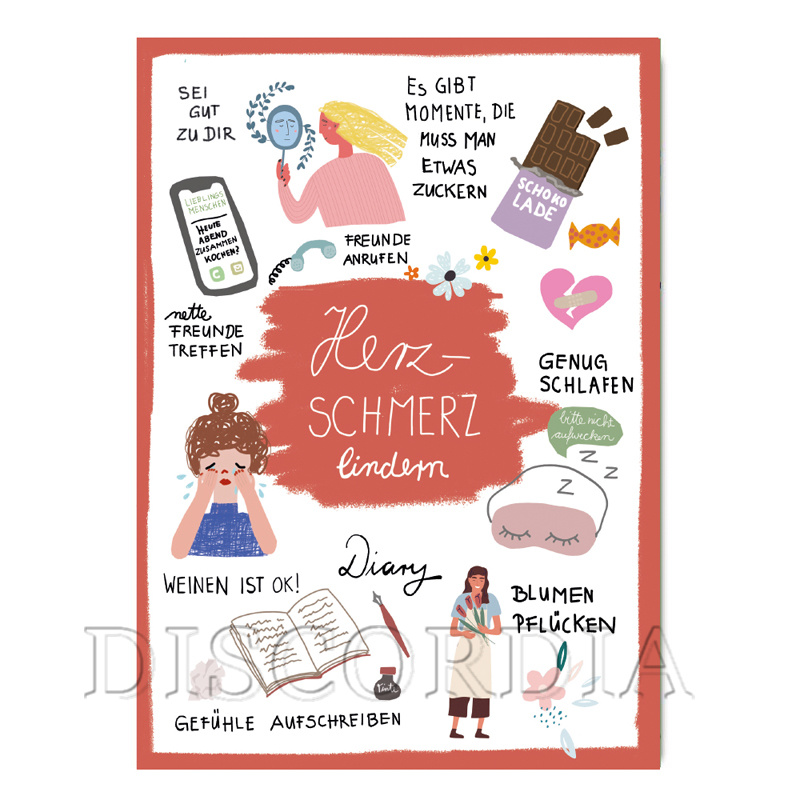 SEI
GUT
ZU DIR
ES GIBT
MOMENTE, DIE
MUSS MAN
ETWAS
ZUCKERN
SCHOKO
LADE
LIEBLINGS
MENSCHEN
HEUTE
ABEND
ZUSAMMEN
KOCHEN?
FREUNDE
ANRUFEN
nette
FREUNDE
TREFFEN
Herz-
SCHMERZ
lindern
GENUG
SCHLAFEN
bitte nicht
aufwecken
Z Z
Z
WEINEN IST OK!
Diary
BLUMEN
PFLÜCKEN
DISCORDIA
Tinte
GEFÜHLE AUFSCHREIBEN